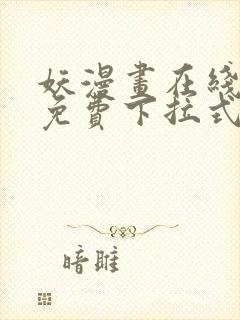 妖漫畫在綫
免費下拉式
暗雎